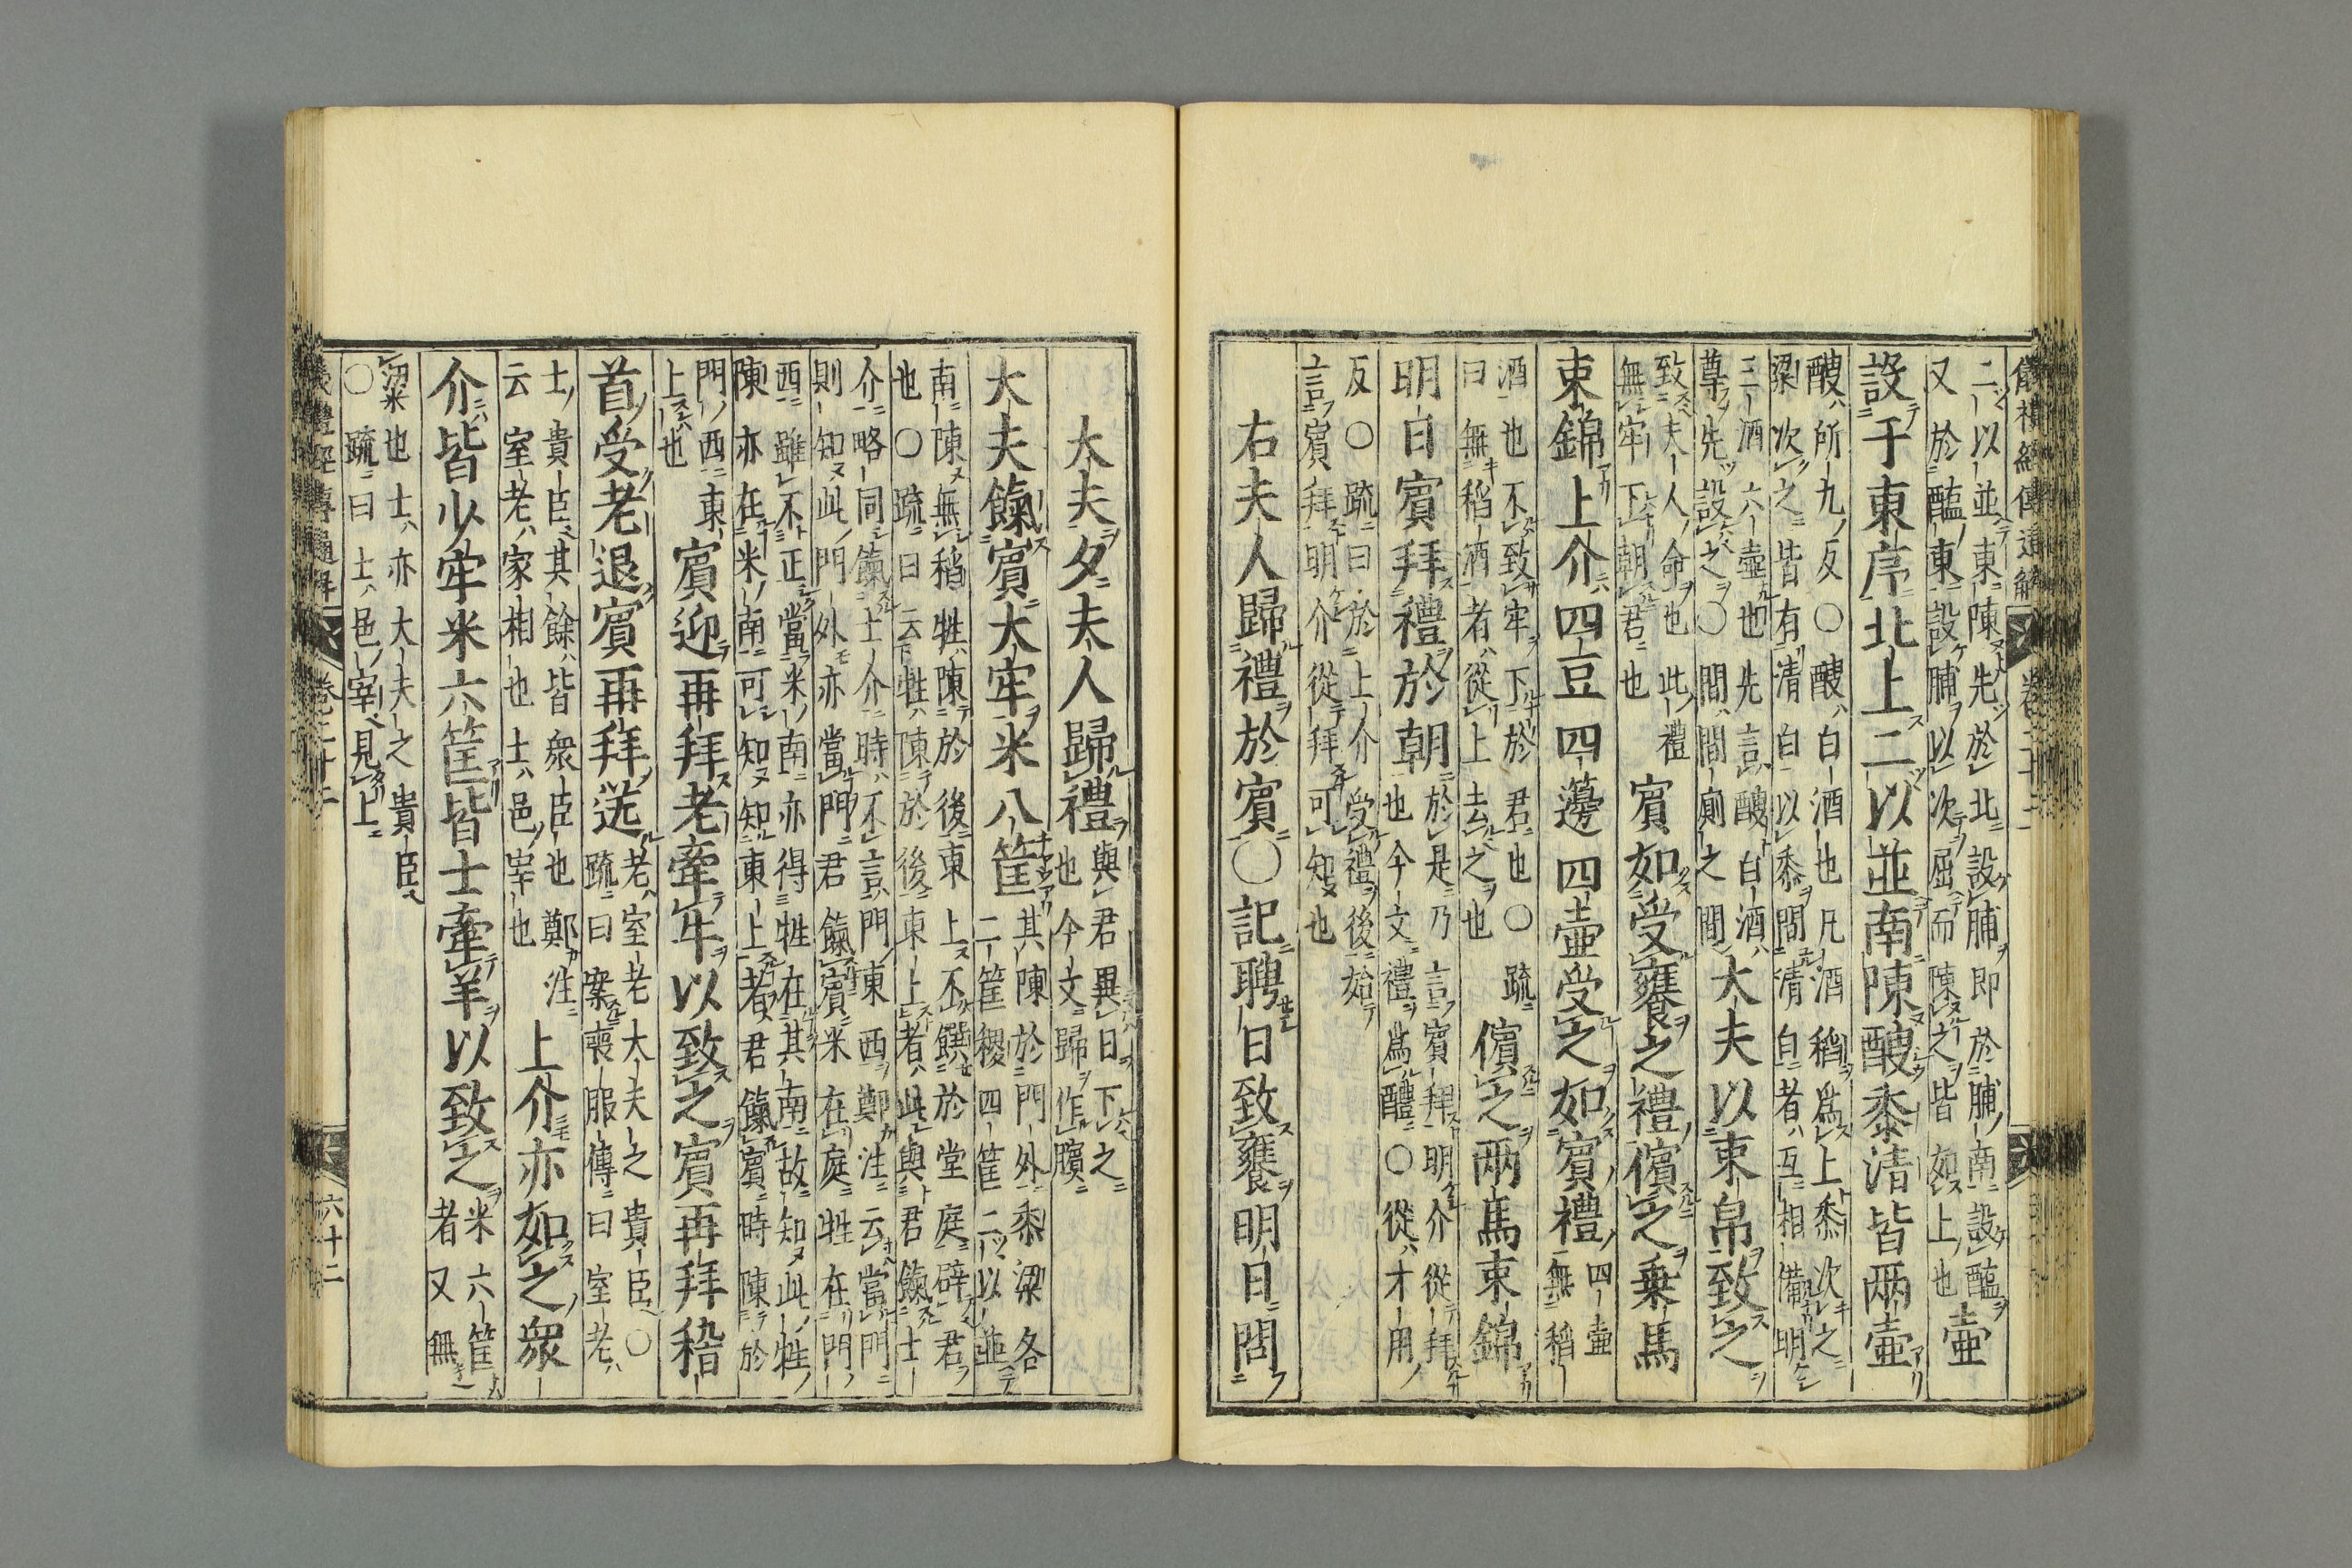 儀禮經傳通解 卷二十二
二以並東陳先於北設脯即於脯南設醯
又於醯東設脯以次屈而陳之皆如上也
壷
設于東序北上二以並南陳醙黍清皆兩壷
醙所九反〇醙白酒也凡酒稻為上黍次之
粱次之皆有清白以黍間清白者互相備明
三酒六壷也先言醙白酒
尊先設之〇間間廁之間
大夫以束帛致之
致夫人命也此禮
無牢下朝君也
賓如受饔之禮儐之乗馬
束錦上介四豆四籩四壷受之如賓禮
四壷
無稻
酒也不致牢下於君也〇疏
曰無稻酒者從上去之也
儐之兩馬束錦
明日賓拜禮於朝
於是乃言賓拜明介從拜
也今文禮為醴〇從才用
反〇疏曰於上介受禮後始
言賓拜明介從拜可知也
右夫人歸禮於賓〇記聘日致饔明日問
大夫夕夫人歸禮
與君異日下之
也今文歸作饋
大夫餼賓大牢米八筐
其陳於門外黍粱各
二筐稷四筐二以並
南陳無稻牲陳於後東上不饌於堂庭辟君
也〇疏曰云牲陳於後東上者此與君餼士
介略同餼士介時不言門東西鄭注云當門
則知此門外亦當門君餼賓米在庭牲在門
西雖不正當米南亦得牲在其南故知此牲
陳亦在米南可知知東上者君餼賓時陳於
門西東
上也
賓迎再拜老牽牛以致之賓再拜稽
首受老退賓再拜送
老室老大夫之貴臣〇
疏曰案喪服傳曰室老
士貴臣其餘皆衆臣也鄭注
云室老家相也士邑宰也
上介亦如之衆
介皆少牢米六筐皆士牽羊以致之
米六筐
者又無
粱也士亦大夫之貴臣
〇疏曰士邑宰見上
儀禮經傳通解 卷二十二 六十二